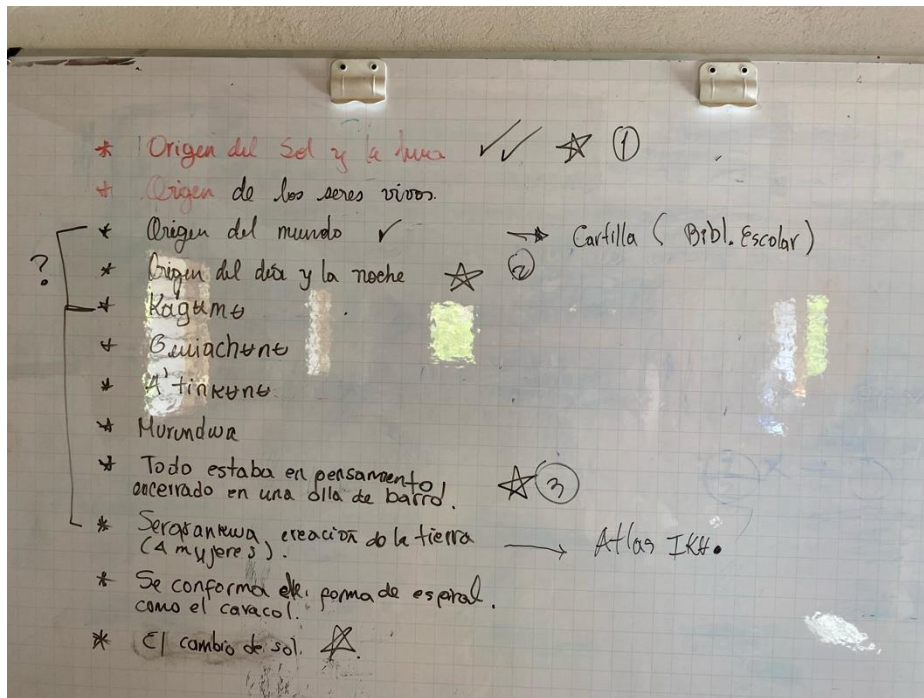 * Origen del Sol y la luna ✓✓ ☆ ①
* Origen de los seres vivos.
* Origen del mundo ✓ → Cartilla ( Bibl. Escolar)
? * Origen del día y la noche ☆ ②
* Kagʉmʉ
* Gwiachʉnʉ
* A'tinkʉnʉ
* Murundwa
* Todo estaba en pensamiento
encerrado en una olla de barro. ☆ ③
* Serankwa, creación de la tierra
(4 mujeres). → Atlas IKʉ.
* Se conforma forma de espiral.
como el caracol.
* El cambio de sol. ☆